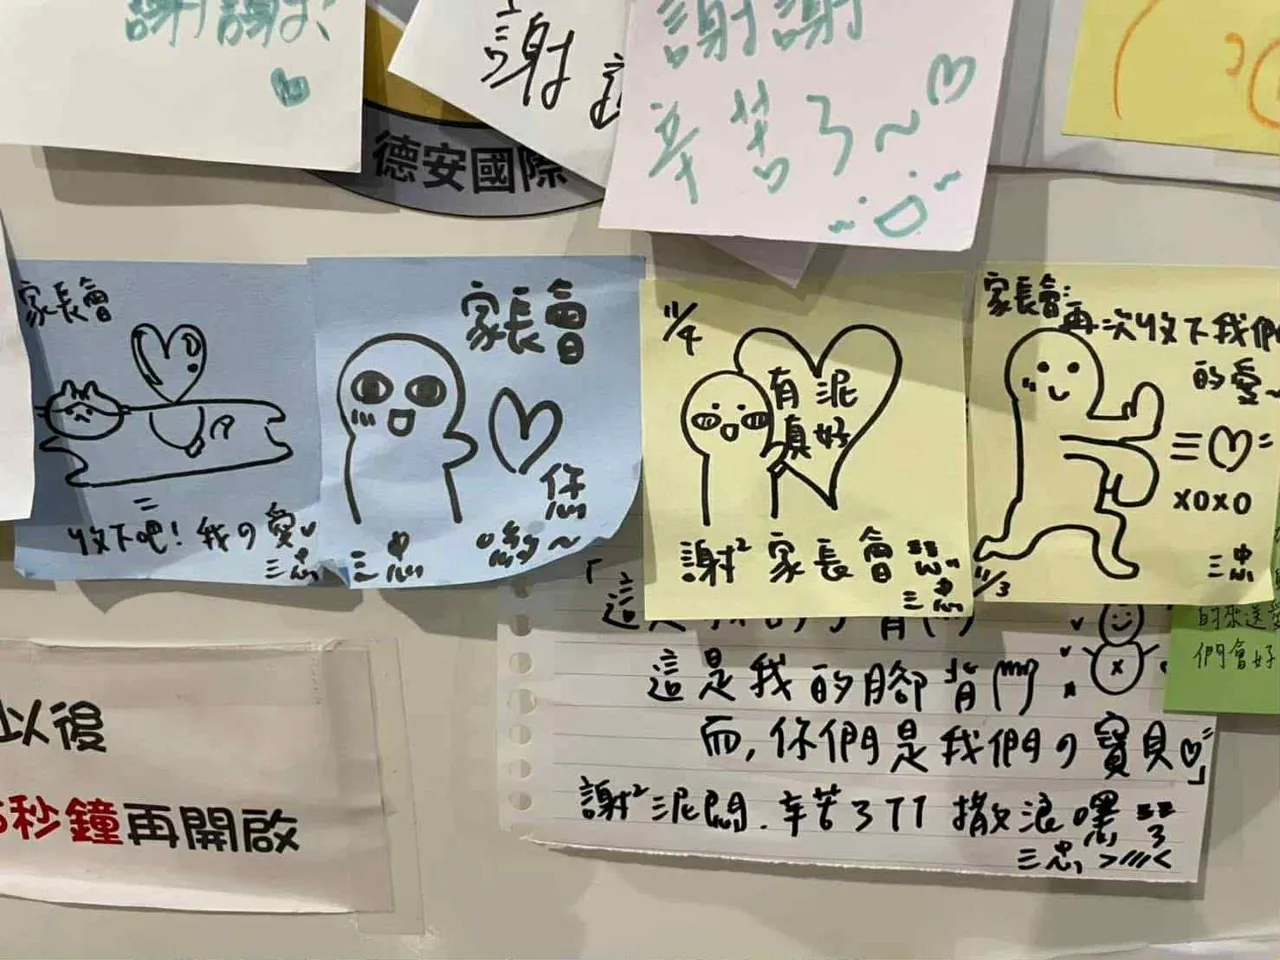 謝謝
謝
謝謝
辛苦了~
德安國際
家長會
收下吧!我の愛
三忠
家長會
您
喲~
三忠
11/4
有泥
真好
謝²家長會
三忠
家長會:
再次收下我們
的愛~
xoxo
三忠
11/3
這是我的腳背門
而,你們是我們の寶貝
」
謝²泥悶.辛苦了TT 撒浪嘿
三忠 >////<
們會好
以後
秒鐘再開啟